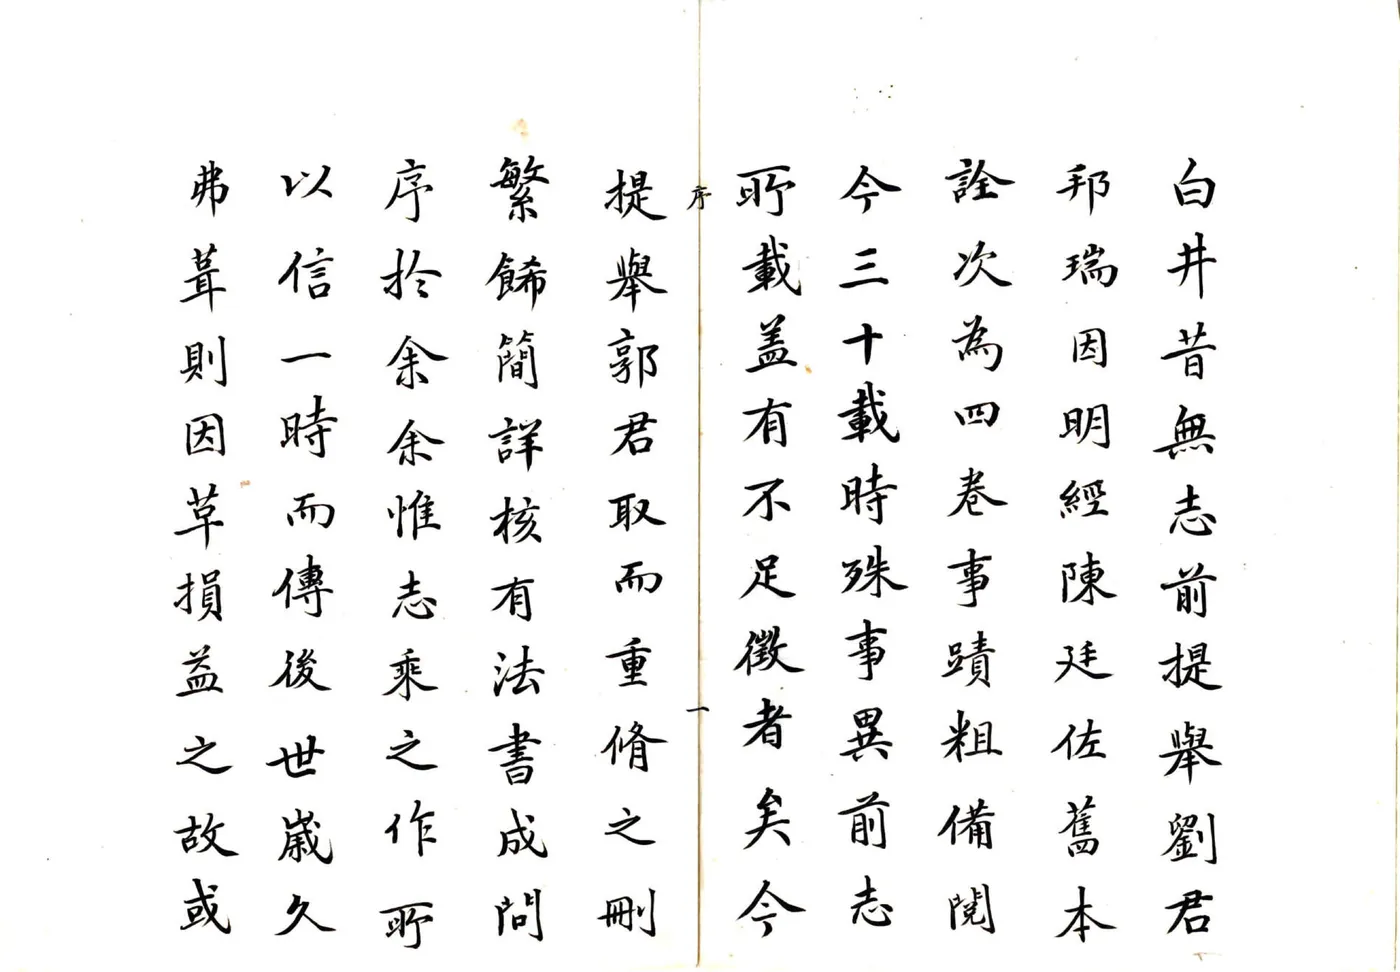 白井昔無志前提舉劉君
邦瑞因明經陳廷佐舊本
詮次為四卷事蹟粗備閱
今三十載時殊事異前志
所載盖有不足徵者矣今
序
一
提舉郭君取而重脩之刪
繁餙簡詳核有法書成問
序於余余惟志乘之作所
以信一時而傳後世歲久
弗葺則因草損益之故或